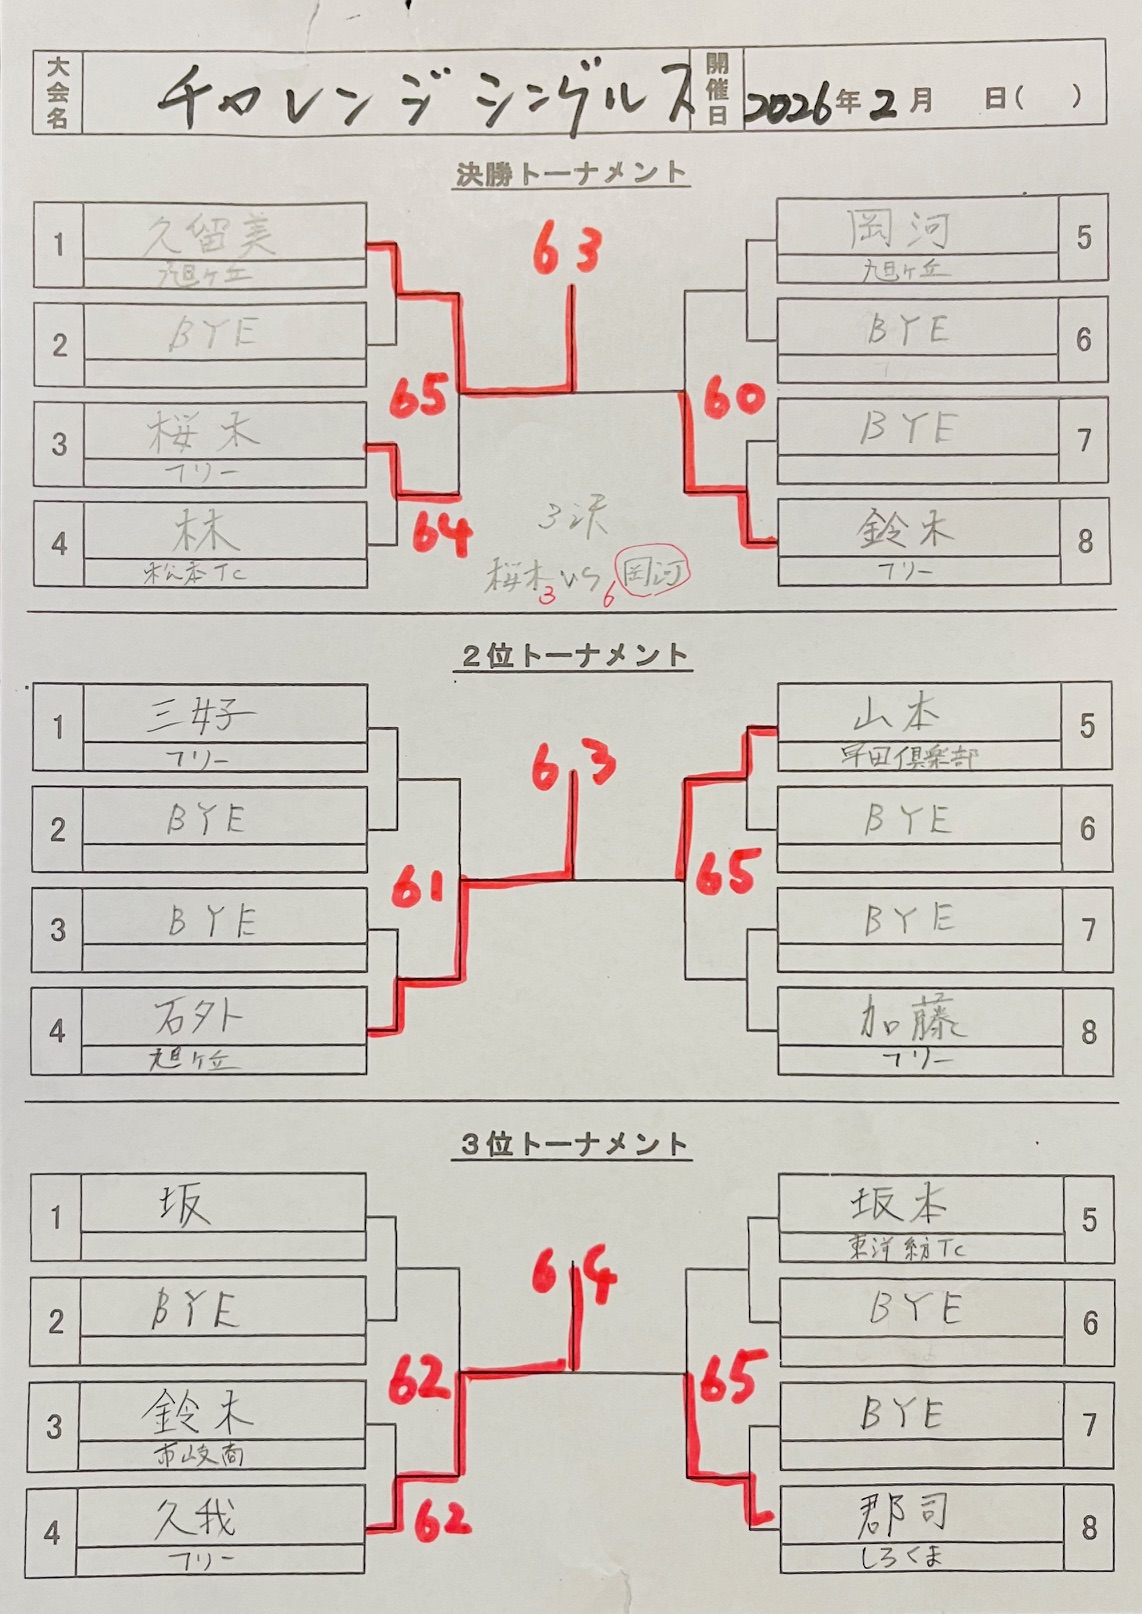 大会名 チャレンジシングルス 開催日 2026年2月 日( )
決勝トーナメント
63
1 久留美
旭ヶ丘
2 BYE
65
3 桜木
フリー
64
4 林
松本TC
岡河 5
旭ヶ丘
BYE 6
60
BYE 7
鈴木 8
フリー
3決
桜木 3 VS 6 岡河
2位トーナメント
63
1 三好
フリー
2 BYE
61
3 BYE
4 石外
旭ヶ丘
山本 5
早田倶楽部
BYE 6
65
BYE 7
加藤 8
フリー
3位トーナメント
64
1 坂
2 BYE
62
3 鈴木
市岐商
62
4 久我
フリー
坂本 5
東洋紡TC
BYE 6
65
BYE 7
郡司 8
しろくま